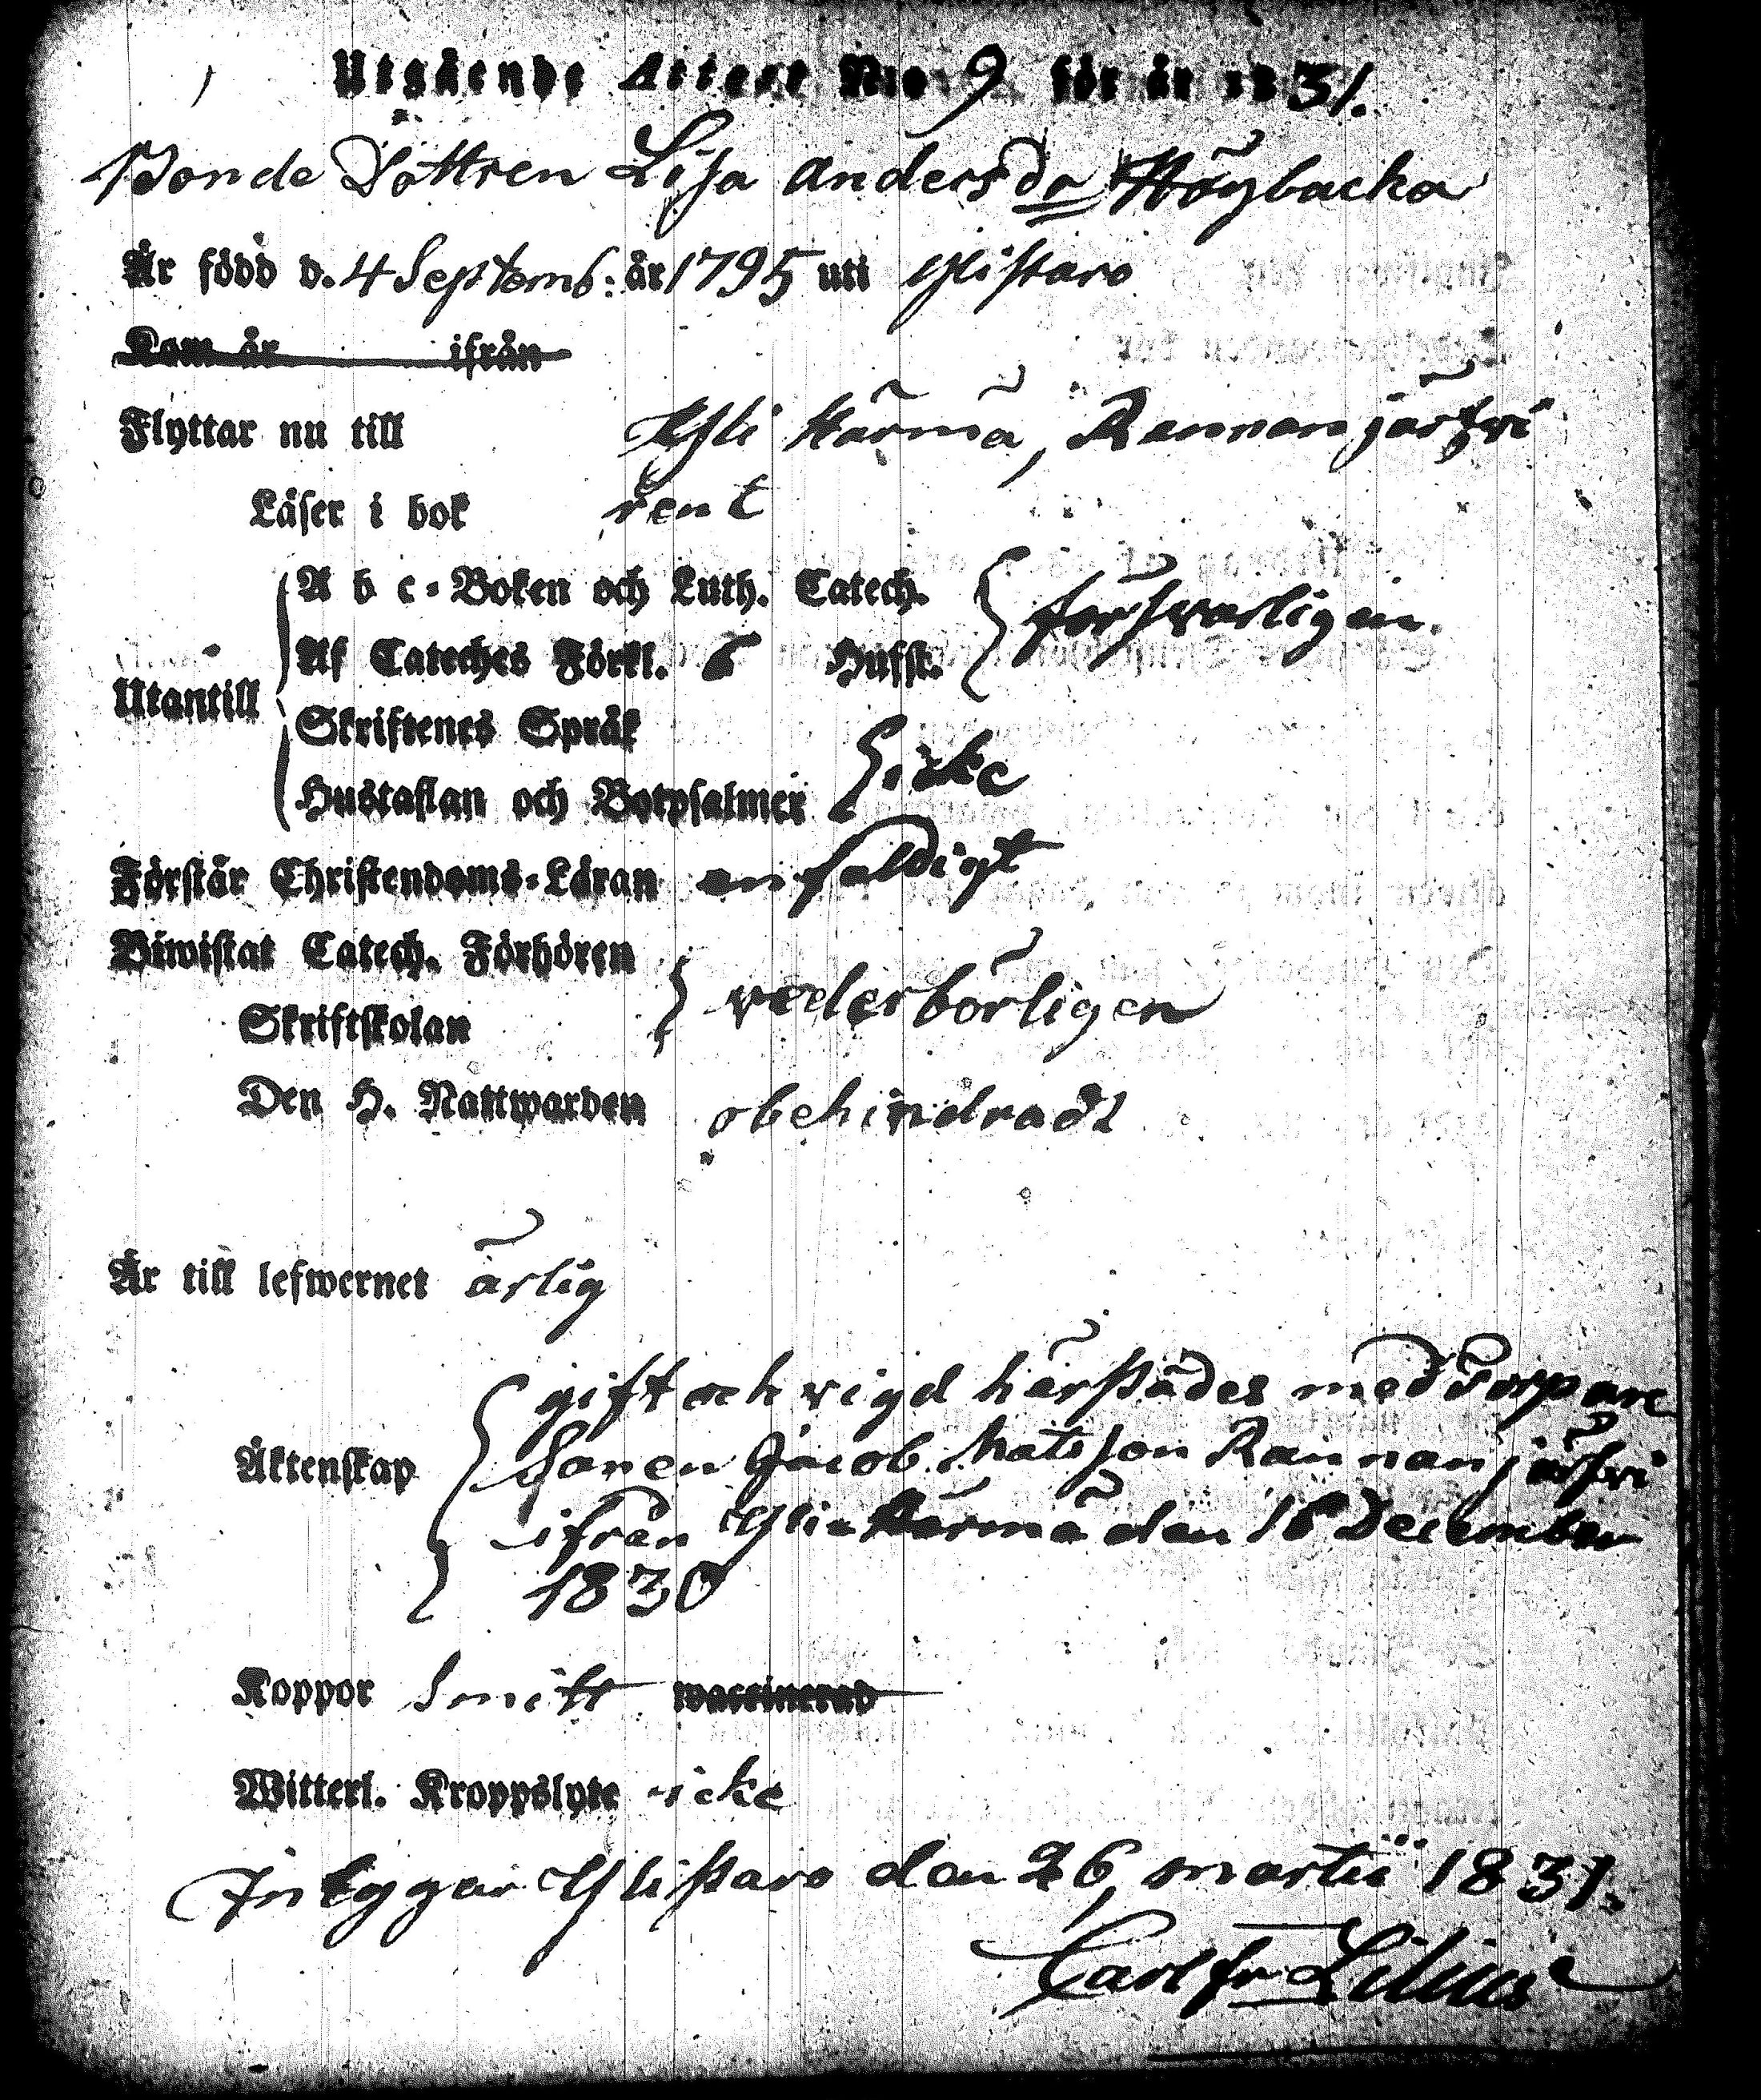 Utgående Attest N:o 9 för år 1831.
Bonde Dottren Lisa Andersdr Höybacka
Är född d. 4 Septemb: år 1795 uti Ylistaro
Kom år ifrån
Flyttar nu till Yli Härmä, Rannanjärfvi
Läser i bok rent
A b c-Boken och Luth. Catech.
försvarligen.
Af Cateches Förkl. 6 Hufst.
Utantill
Skriftenes Språk
icke
Hustaflan och Botpsalmer
Förstår Christendoms-Läran enfaldigt
Biwistat Catech. Förhören
vederbörligen
Skriftskolan
Den H. Nattwarden obehindradt
Är till lefwernet ärlig
gift och vigd härstädes med Torpare
Sonen Jacob Matsson Rannanjärfvi
Äktenskap
ifrån Yli Härmä den 16 December
1830
Koppor Smitt waccinerad
Witterl. Kroppslyte icke
Intygar Ylistaro den 26 martii 1831.
Carl Fr Lilius